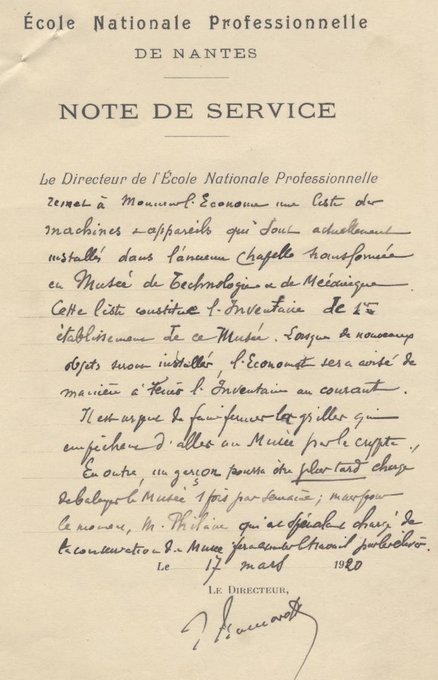 École Nationale Professionnelle
DE NANTES
NOTE DE SERVICE
Le Directeur de l'École Nationale Professionnelle
remet à Monsieur l'Econome une liste des
machines & appareils qui sont actuellement
installés dans l'ancienne chapelle transformée
en Musée de Technologie & de Mécanique.
Cette liste constitue l'Inventaire de 1er
établissement de ce Musée. Lorsque de nouveaux
objets seront installés, l'Econome sera avisé de
manière à tenir l'Inventaire au courant.
Il est urgent de faire fermer les grilles qui
empêchent d'aller au Musée par la crypte.
En outre, un garçon pourra être plus tard chargé
de balayer le Musée 1 fois par semaine; mais pour
le moment, M. qui est spécialement chargé de
la conservation du Musée fera exécuter le travail par les élèves.
Le 17 mars 1920
LE DIRECTEUR,